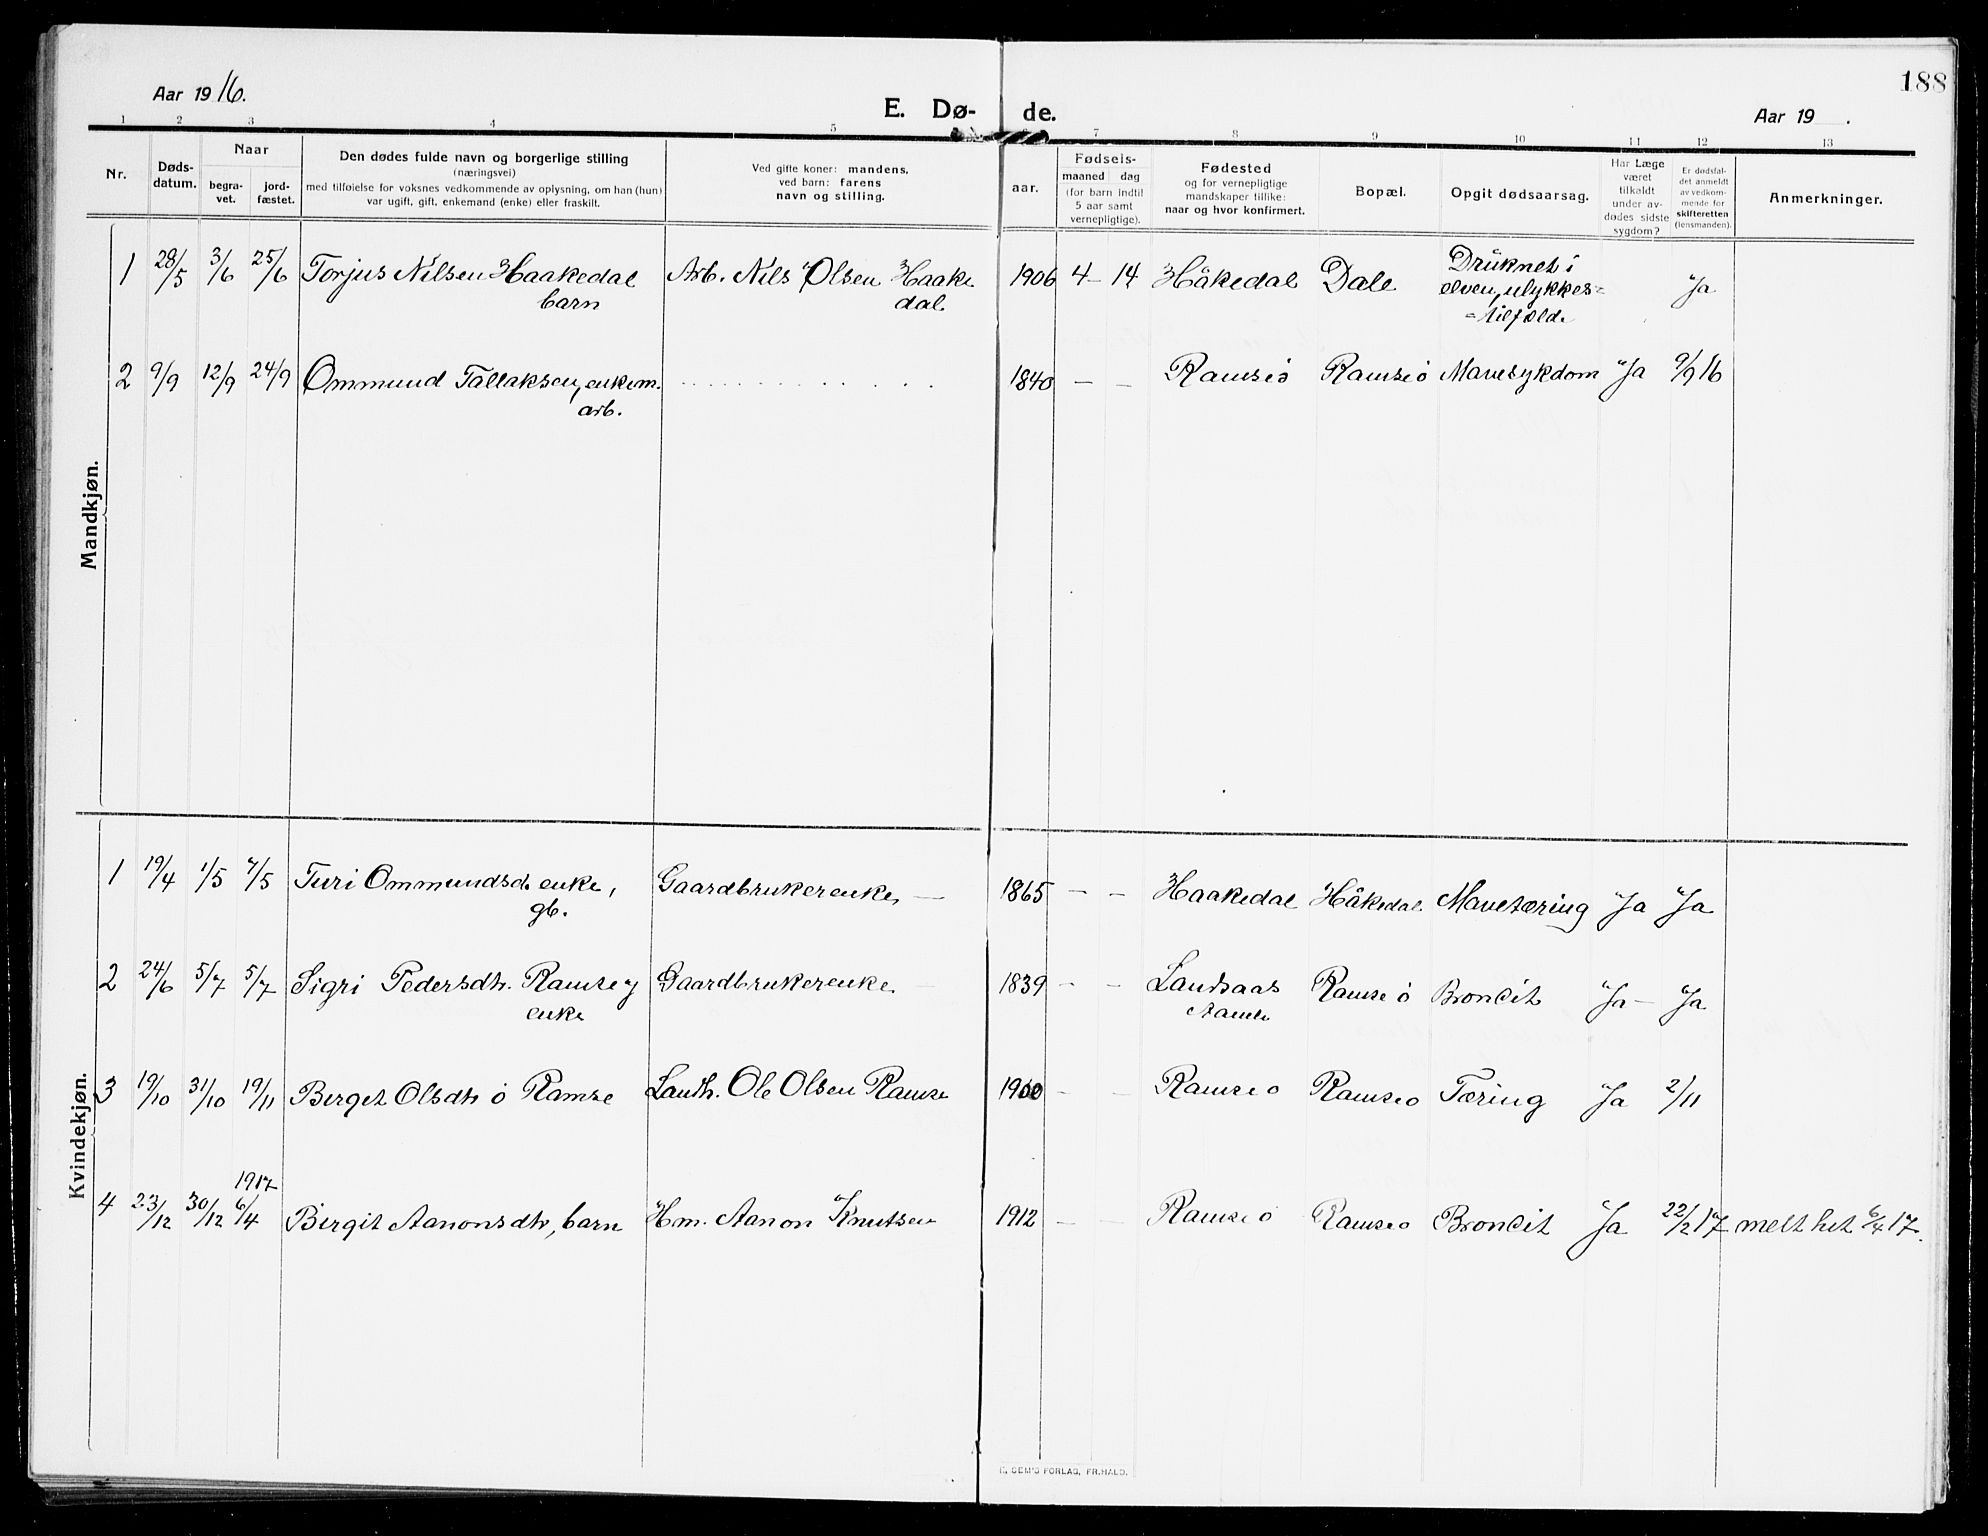 188
Aar 1916.
E. Dø- de.
Aar 19 .
1 2 3 4 5 7 8 9 10 11 12 13
Nr.
Døds-
datum.
Naar
begra-
vet.
jord-
fæstet.
Den dødes fulde navn og borgerlige stilling
(næringsvei)
med tilføielse for voksnes vedkommende av oplysning, om han (hun)
var ugift, gift, enkemand (enke) eller fraskilt.
Ved gifte koner: mandens,
ved barn: farens
navn og stilling.
aar.
Fødsels-
maaned dag
(for barn indtil
5 aar samt
vernepligtige).
Fødested
og for vernepligtige
mandskaper tillike:
naar og hvor konfirmert.
Bopæl.
Opgit dødsaarsag.
Har Læge
været
tilkaldt
under av-
dødes sidste
sygdom?
Er dødsfal-
det anmeldt
av vedkom-
mende for
skifteretten
(lensmanden).
Anmerkninger.
Mandkjøn.
1 28/5 3/6 25/6 Torjus Nilsen Haakedal Arb. Nils Olsen Haake 1906 4 - 14 Håkedal Dale Druknet i
barn dal elven, ulykkes= Ja
=tilfælde
2 9/9 12/9 24/9 Ommund Tallaksen, enkem. . . . . . . . . . . . . . 1840 - - Ramseö Ramseö Mavesykdom Ja 9/9 16
arb.
Kvindekjøn.
1 19/4 1/5 7/5 Turi Ommundsd. enke, Gaardbrukerenke, — 1865 - - Haakedal Håkedal Mavetæring Ja Ja
gb.
2 24/6 5/7 5/7 Sigri Pedersdtr. Ramsey Gaardbrukerenke 1839 - - Landsaas Ramseö Broncit Ja - Ja
enke
3 19/10 31/10 19/11 Berget Olsdtr ö Ramse Landh. Ole Olsen Ramse 1900 - - Ramseö Ramseö Tæring Ja 2/11
1917
4 23/12 30/12 6/4 Birgit Aanonsdtr, barn Hm. Aanon Knutsen 1912 - - Ramseö Ramseö Broncit Ja 22/2 17 melt hit 6/4 17.
E. SEM'S FORLAG, FR.HALD.